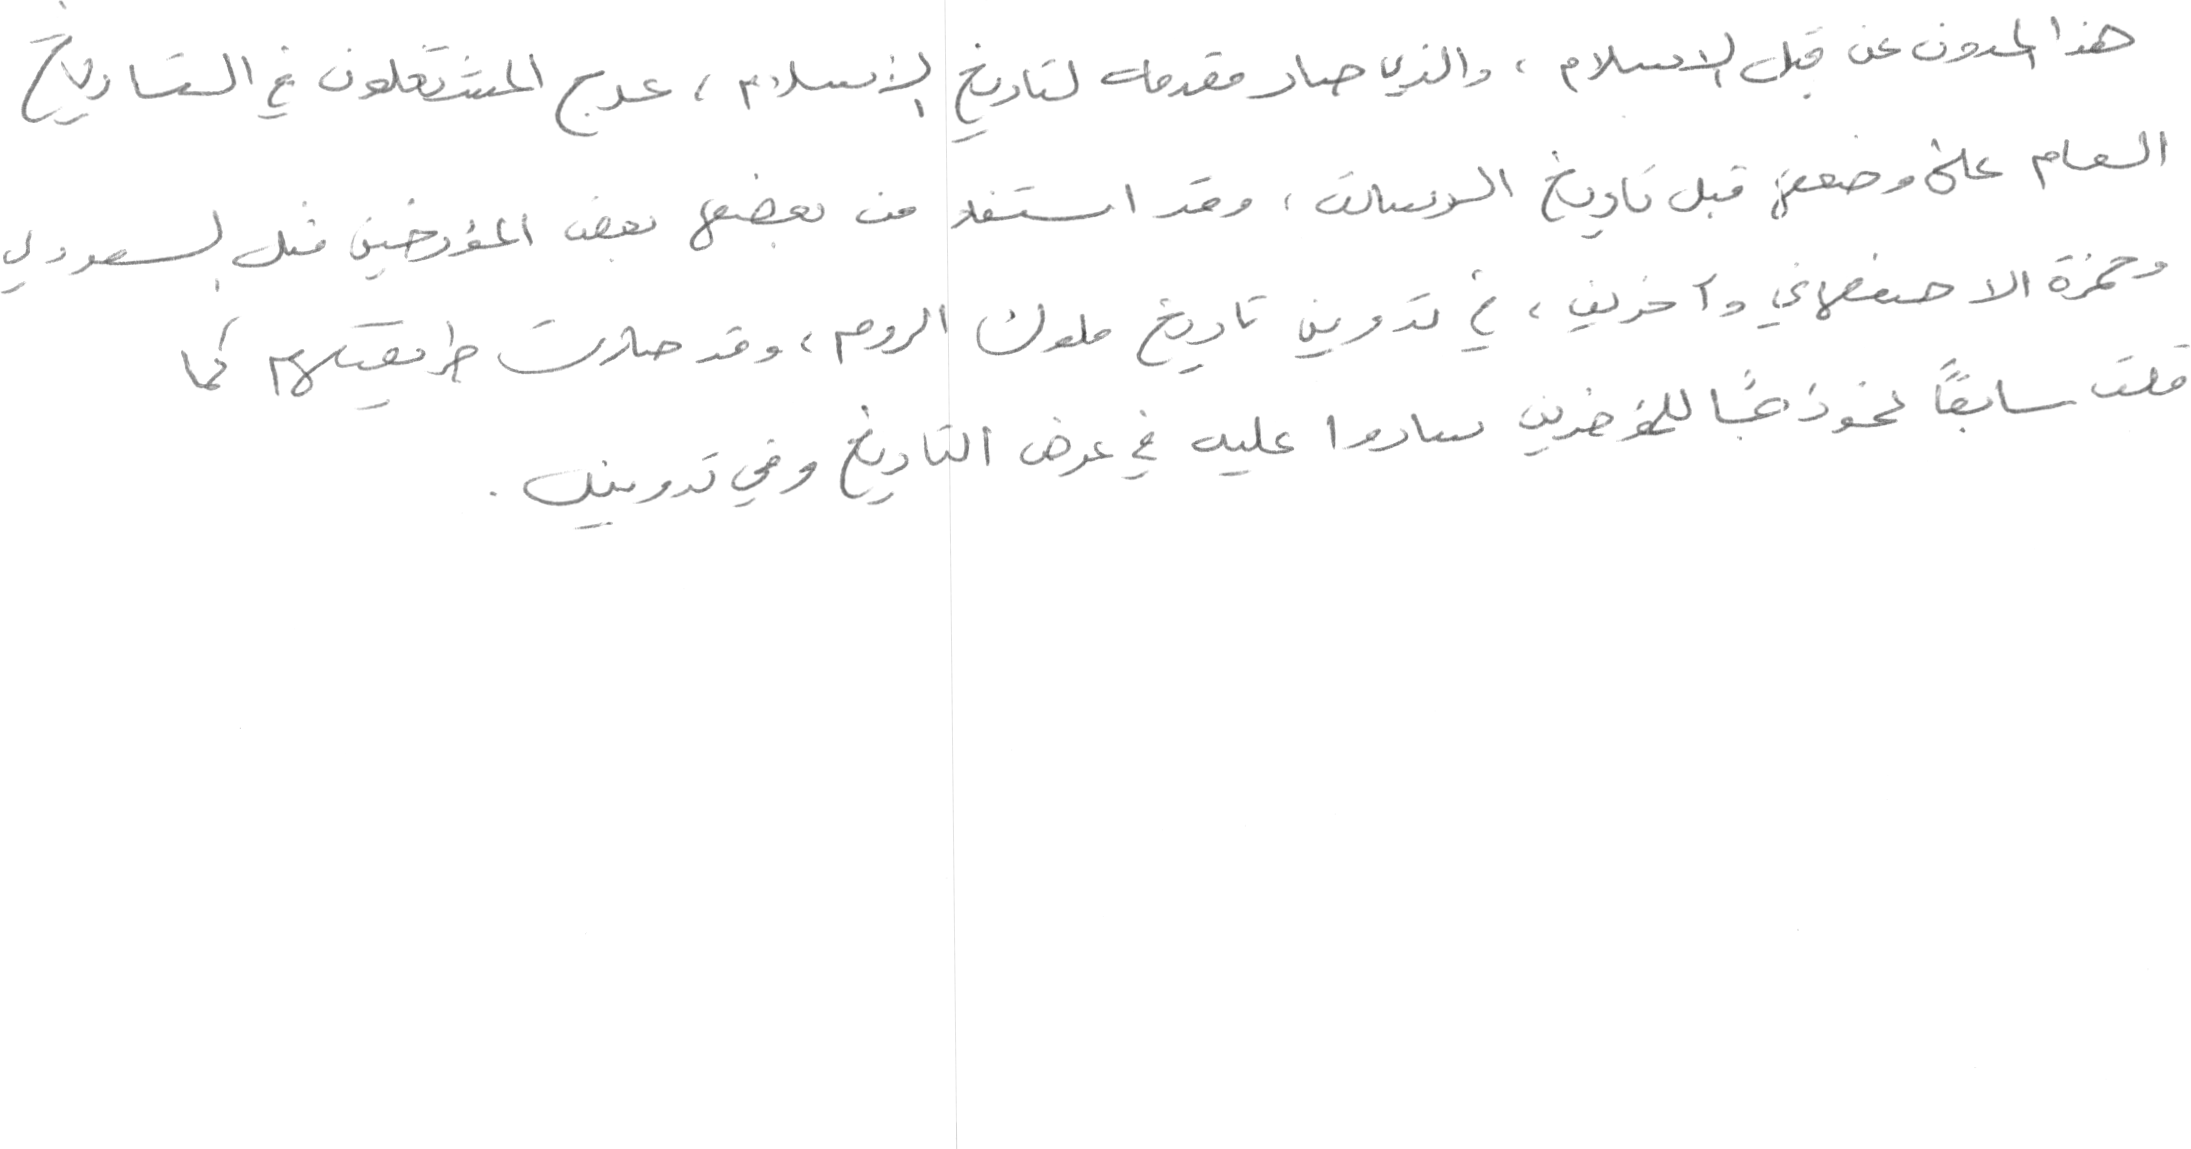 هذا المدون عن قبل الاسلام، والذي صار مقدمة لتاريخ الإسلام، عرج المشتغلون في التاريخ
العام على وضعه قبل تاريخ الرسالة، وقد استفاد من بعضها بعض المؤرخين مثل المسعودي
وحمزة الاصفهاني وآخرين، في تدوين تاريخ ملوك الروم، وقد صارت طريقتهم كما
قلت سابقًا نموذجًا للمؤخرين ساروا عليه في عرض التاريخ وفي تدوينه.